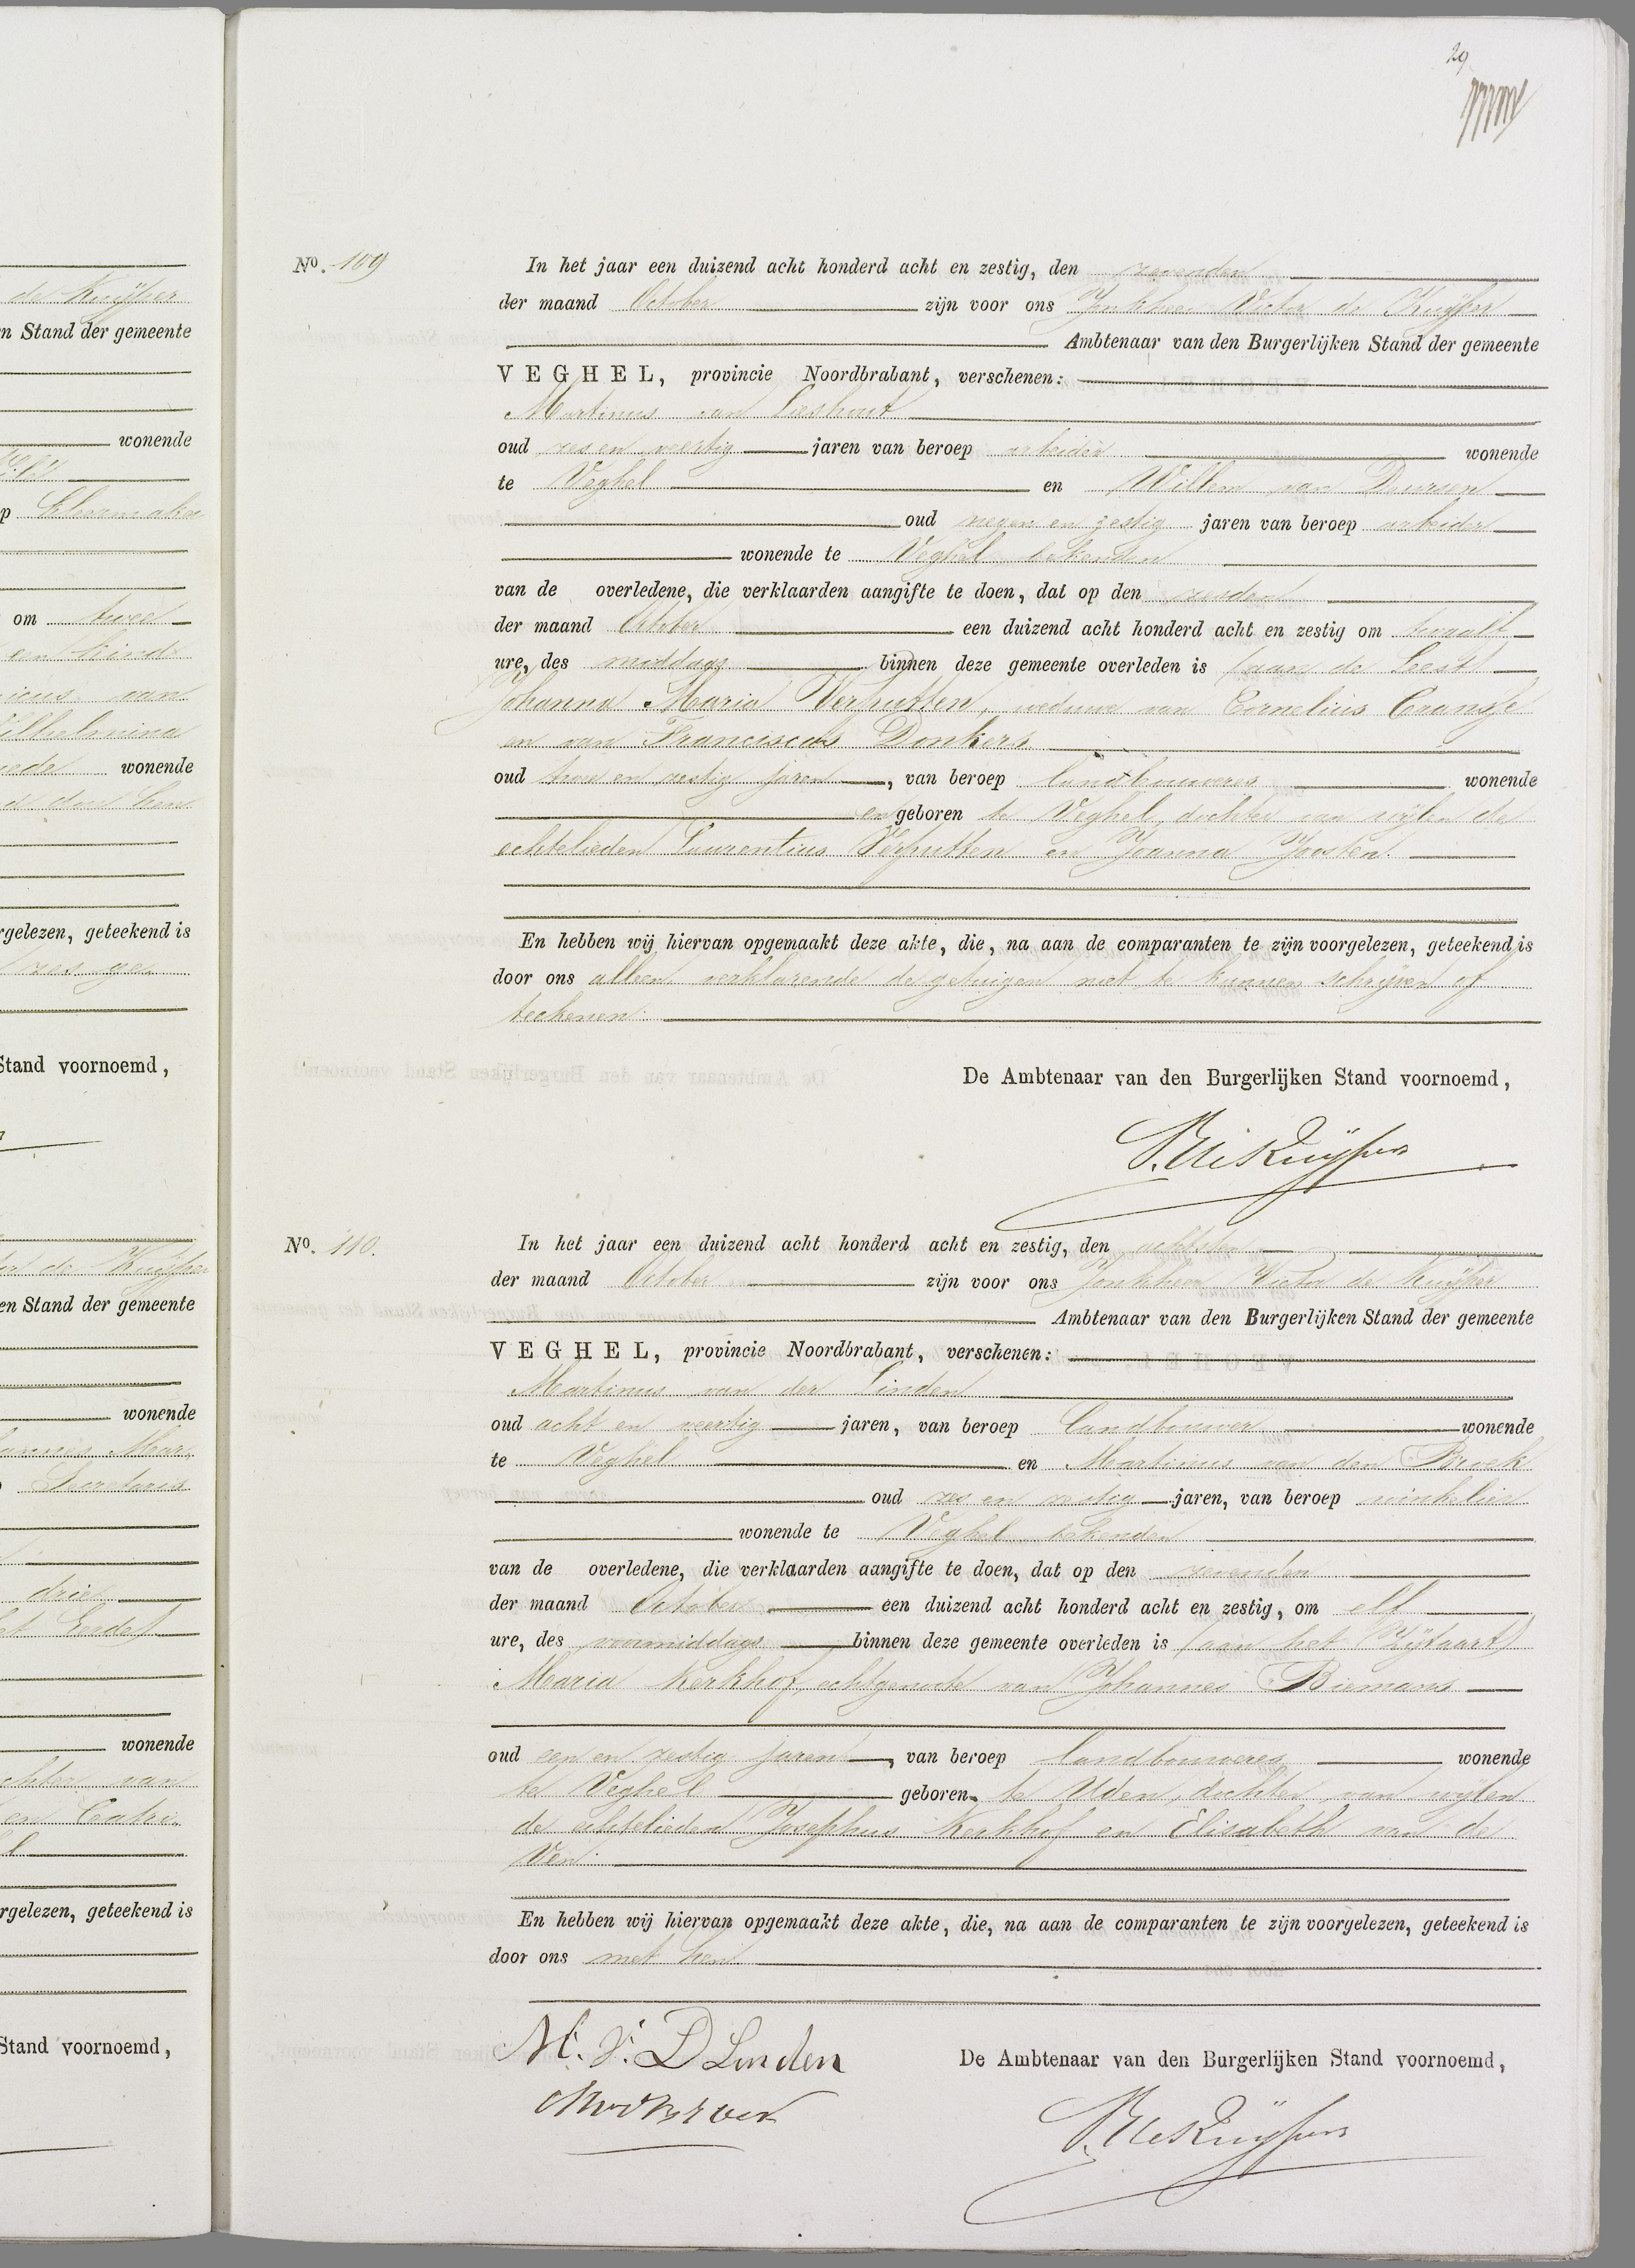 de Kuijper
n Stand der gemeente
wonende
p Kleermaker
om twee
een kind
icus van
ilhelmina
wonende
rgelezen, geteekend is
Stand voornoemd,
de Kuijper
en Stand der gemeente
wonende
Secretaris
drie
het Eerde
wonende
chter van
en Catri-
rgelezen, geteekend is
Stand voornoemd,
29
No. 109
In het jaar een duizend acht honderd acht en zestig, den zevenden
der maand October zijn voor ons Jonkheer Victor de Kuijper
Ambtenaar van den Burgerlijken Stand der gemeente
VEGHEL, provincie Noordbrabant, verschenen:
Martinus van Lieshout
oud zes en veertig jaren van beroep arbeider wonende
te Veghel en Willem van Deursen
oud negen en zestig jaren van beroep arbeider
wonende te Veghel, bekenden
van de overledene, die verklaarden aangifte te doen, dat op den zesden
der maand October een duizend acht honderd acht en zestig om twaalf
ure, des middags binnen deze gemeente overleden is (aan de Leest)
Johanna Maria Verputten, weduwe van Cornelius Craansje
en van Franciscus Donkers
oud twee en zestig jaren, van beroep landbouweres wonende
en geboren te Veghel, dochter van wijlen de
echtelieden Laurentius Verputten en Joanna Joosten.
En hebben wij hiervan opgemaakt deze akte, die, na aan de comparanten te zijn voorgelezen, geteekend is
door ons alleen verklarende de getuigen niet te kunnen schrijven of
teekenen.
De Ambtenaar van den Burgerlijken Stand voornoemd,
V. de Kuijper
No. 110.
In het jaar een duizend acht honderd acht en zestig, den achtsten
der maand October zijn voor ons Jonkheer Victor de Kuijper
Ambtenaar van den Burgerlijken Stand der gemeente
VEGHEL, provincie Noordbrabant, verschenen:
Martinus van der Linden
oud acht en veertig jaren, van beroep landbouwer wonende
te Veghel en Martinus van den Broek
oud zes en zestig jaren, van beroep winkelier
wonende te Veghel bekenden
van de overledene, die verklaarden aangifte te doen, dat op den zevenden
der maand October een duizend acht honderd acht en zestig, om elf
ure, des voormiddags binnen deze gemeente overleden is (aan het Zijtaart)
Maria Kerkhof, echtgenoote van Johannes Biemans
oud een en zestig jaren, van beroep landbouweres wonende
te Veghel geboren te Uden, dochter van wijlen
de echtelieden Josephus Kerkhof en Elisabeth van de
Ven.
En hebben wij hiervan opgemaakt deze akte, die, na aan de comparanten te zijn voorgelezen, geteekend is
door ons met hen
M. V. D Linden
De Ambtenaar van den Burgerlijken Stand voornoemd,
V. de Kuijper